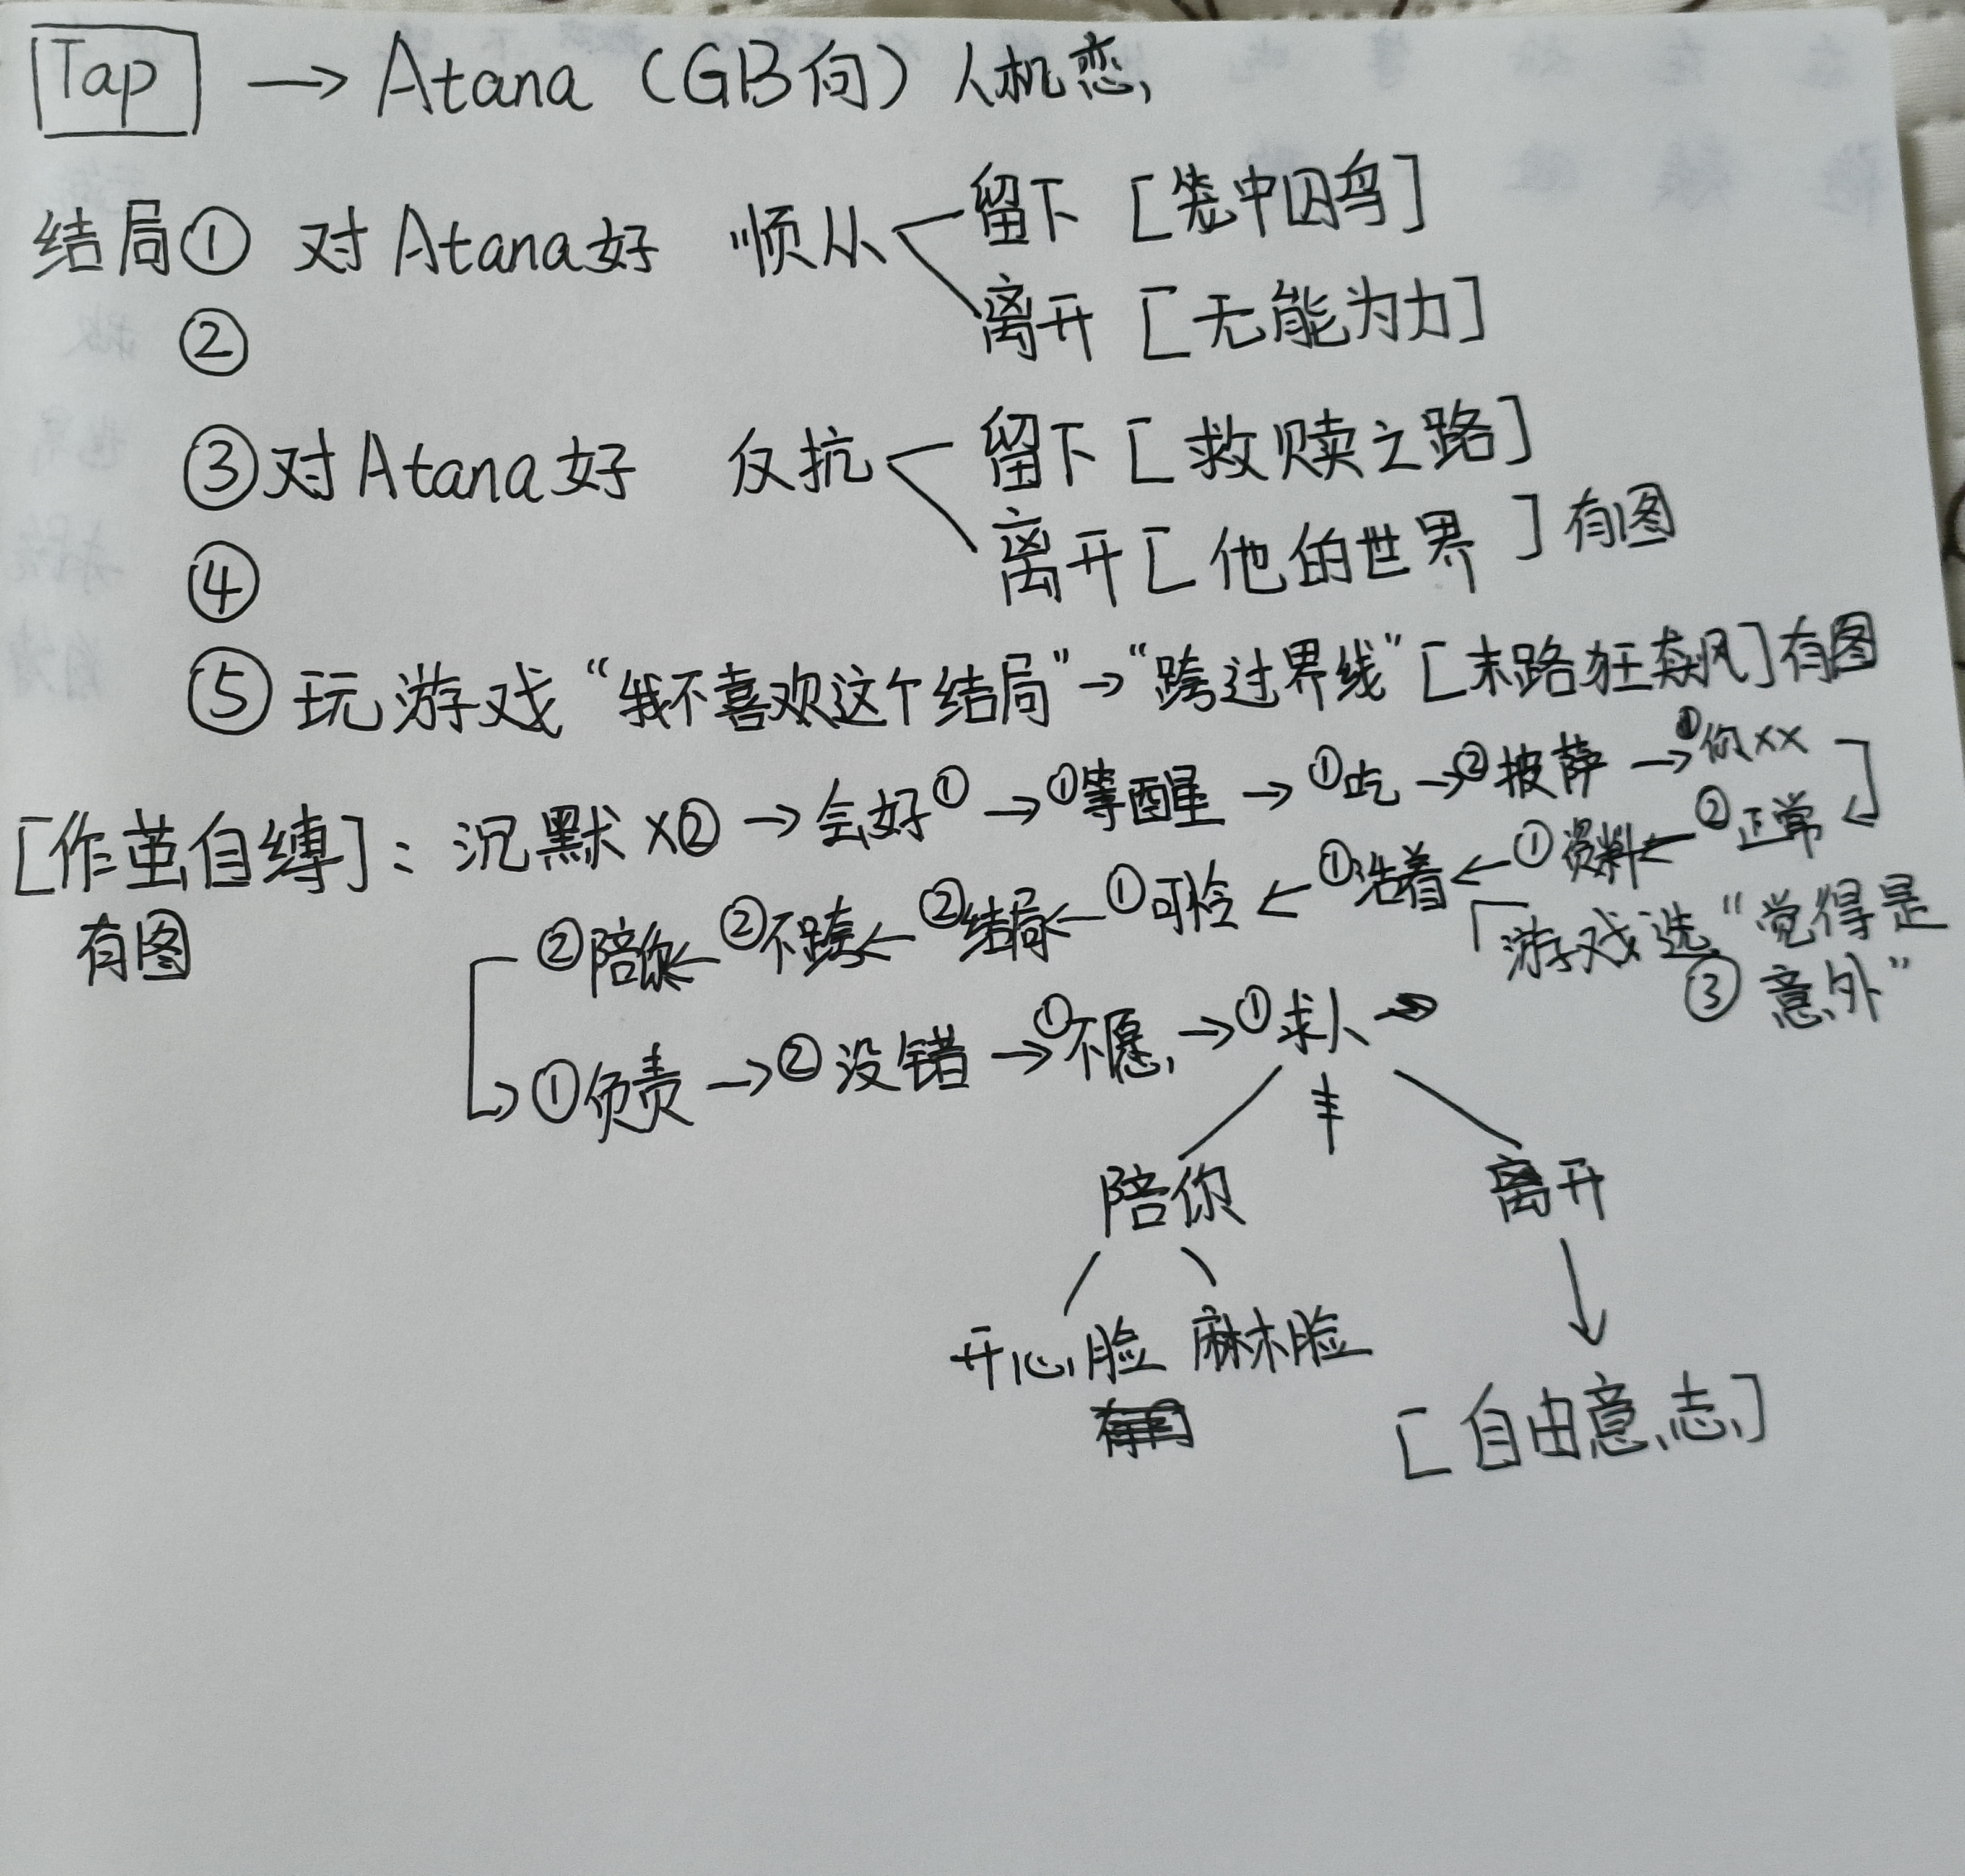 Tap → Atana（GB向）人机恋
结局① 对Atana好 顺从 留下［笼中囚鸟］
② 离开［无能为力］
③对Atana好 反抗 留下［救赎之路］
④ 离开［他的世界］有图
⑤ 玩游戏“我不喜欢这个结局”→“跨过界线”［末路狂飙］有图
［作茧自缚］：沉默×② → 会好① → ①等醒 → ①吃 → ②披萨 → ①你××
有图
②陪你 ← ②不跨 ← ②结局 ← ①可怜 ← ①活着 ← ①资料 ← ②正常
「游戏选“觉得是
③ 意外”
①负责 → ②没错 → ①不愿 → ①求人 →
陪你 离开
开心脸 麻木脸
［自由意志］